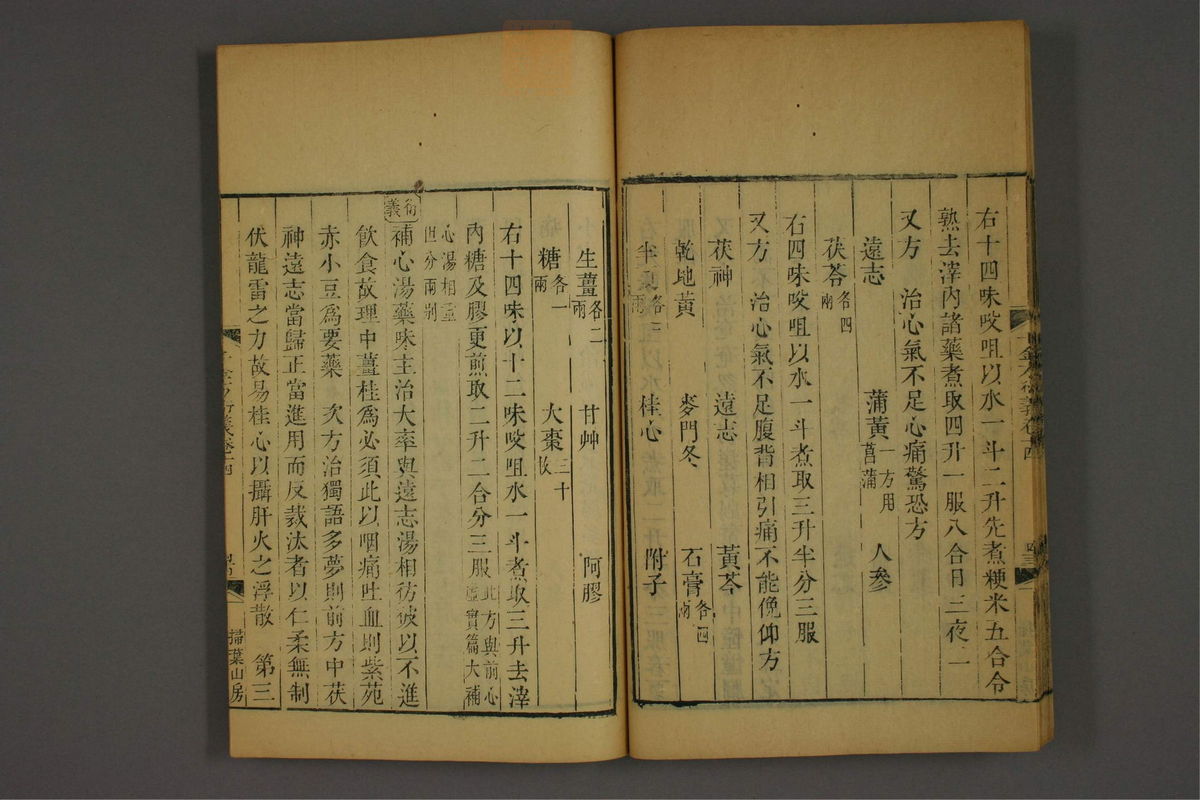 右十四味㕮咀以水一斗二升先煮粳米五合令
熟去滓內諸藥煮取四升一服八合日三夜一
又方　治心氣不足心痛驚恐方
遠志　蒲黃一方用菖蒲　人參
茯苓各四兩
右四味㕮咀以水一斗煮取三升半分三服
又方　治心氣不足腹背相引痛不能俛仰方
茯神　遠志　黃芩
乾地黃　麥門冬　石膏各四兩
半夏各三兩　桂心　附子
生薑各二兩　甘艸　阿膠
糖各一兩　大棗三十枚
右十四味以十二味㕮咀水一斗煮取三升去滓
內糖及膠更煎取二升二合分三服此方與前心虛實篇大補
心湯相重但分兩別
衍義補心湯藥味主治大率與遠志湯相彷彼以不進
飲食故理中薑桂爲必須此以咽痛吐血則紫苑
赤小豆爲要藥　次方治獨語多夢則前方中茯
神遠志當歸正當進用而反裁汰者以仁柔無制
伏龍雷之力故易桂心以攝肝火之浮散　第三
千金方衍義卷十四
掃葉山房